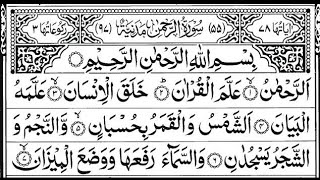 اٰیَاتُهَا ٧٨ (٥٥) سُوْرَةُ الرَّحْمٰنِ مَدَنِیَّةٌ (٩٧) رُكُوْعَاتُهَا ٣
بِسْمِ اللّٰهِ الرَّحْمٰنِ الرَّحِیْمِ
اَلرَّحْمٰنُ ۙ﴿١﴾ عَلَّمَ الْقُرْاٰنَ ؕ﴿٢﴾ خَلَقَ الْاِنْسَانَ ۙ﴿٣﴾ عَلَّمَهُ
الْبَیَانَ ﴿٤﴾ اَلشَّمْسُ وَالْقَمَرُ بِحُسْبَانٍ ﴿٥﴾ وَّالنَّجْمُ وَ
الشَّجَرُ یَسْجُدٰنِ ﴿٦﴾ وَالسَّمَآءَ رَفَعَهَا وَوَضَعَ الْمِیْزَانَ ۙ﴿٧﴾